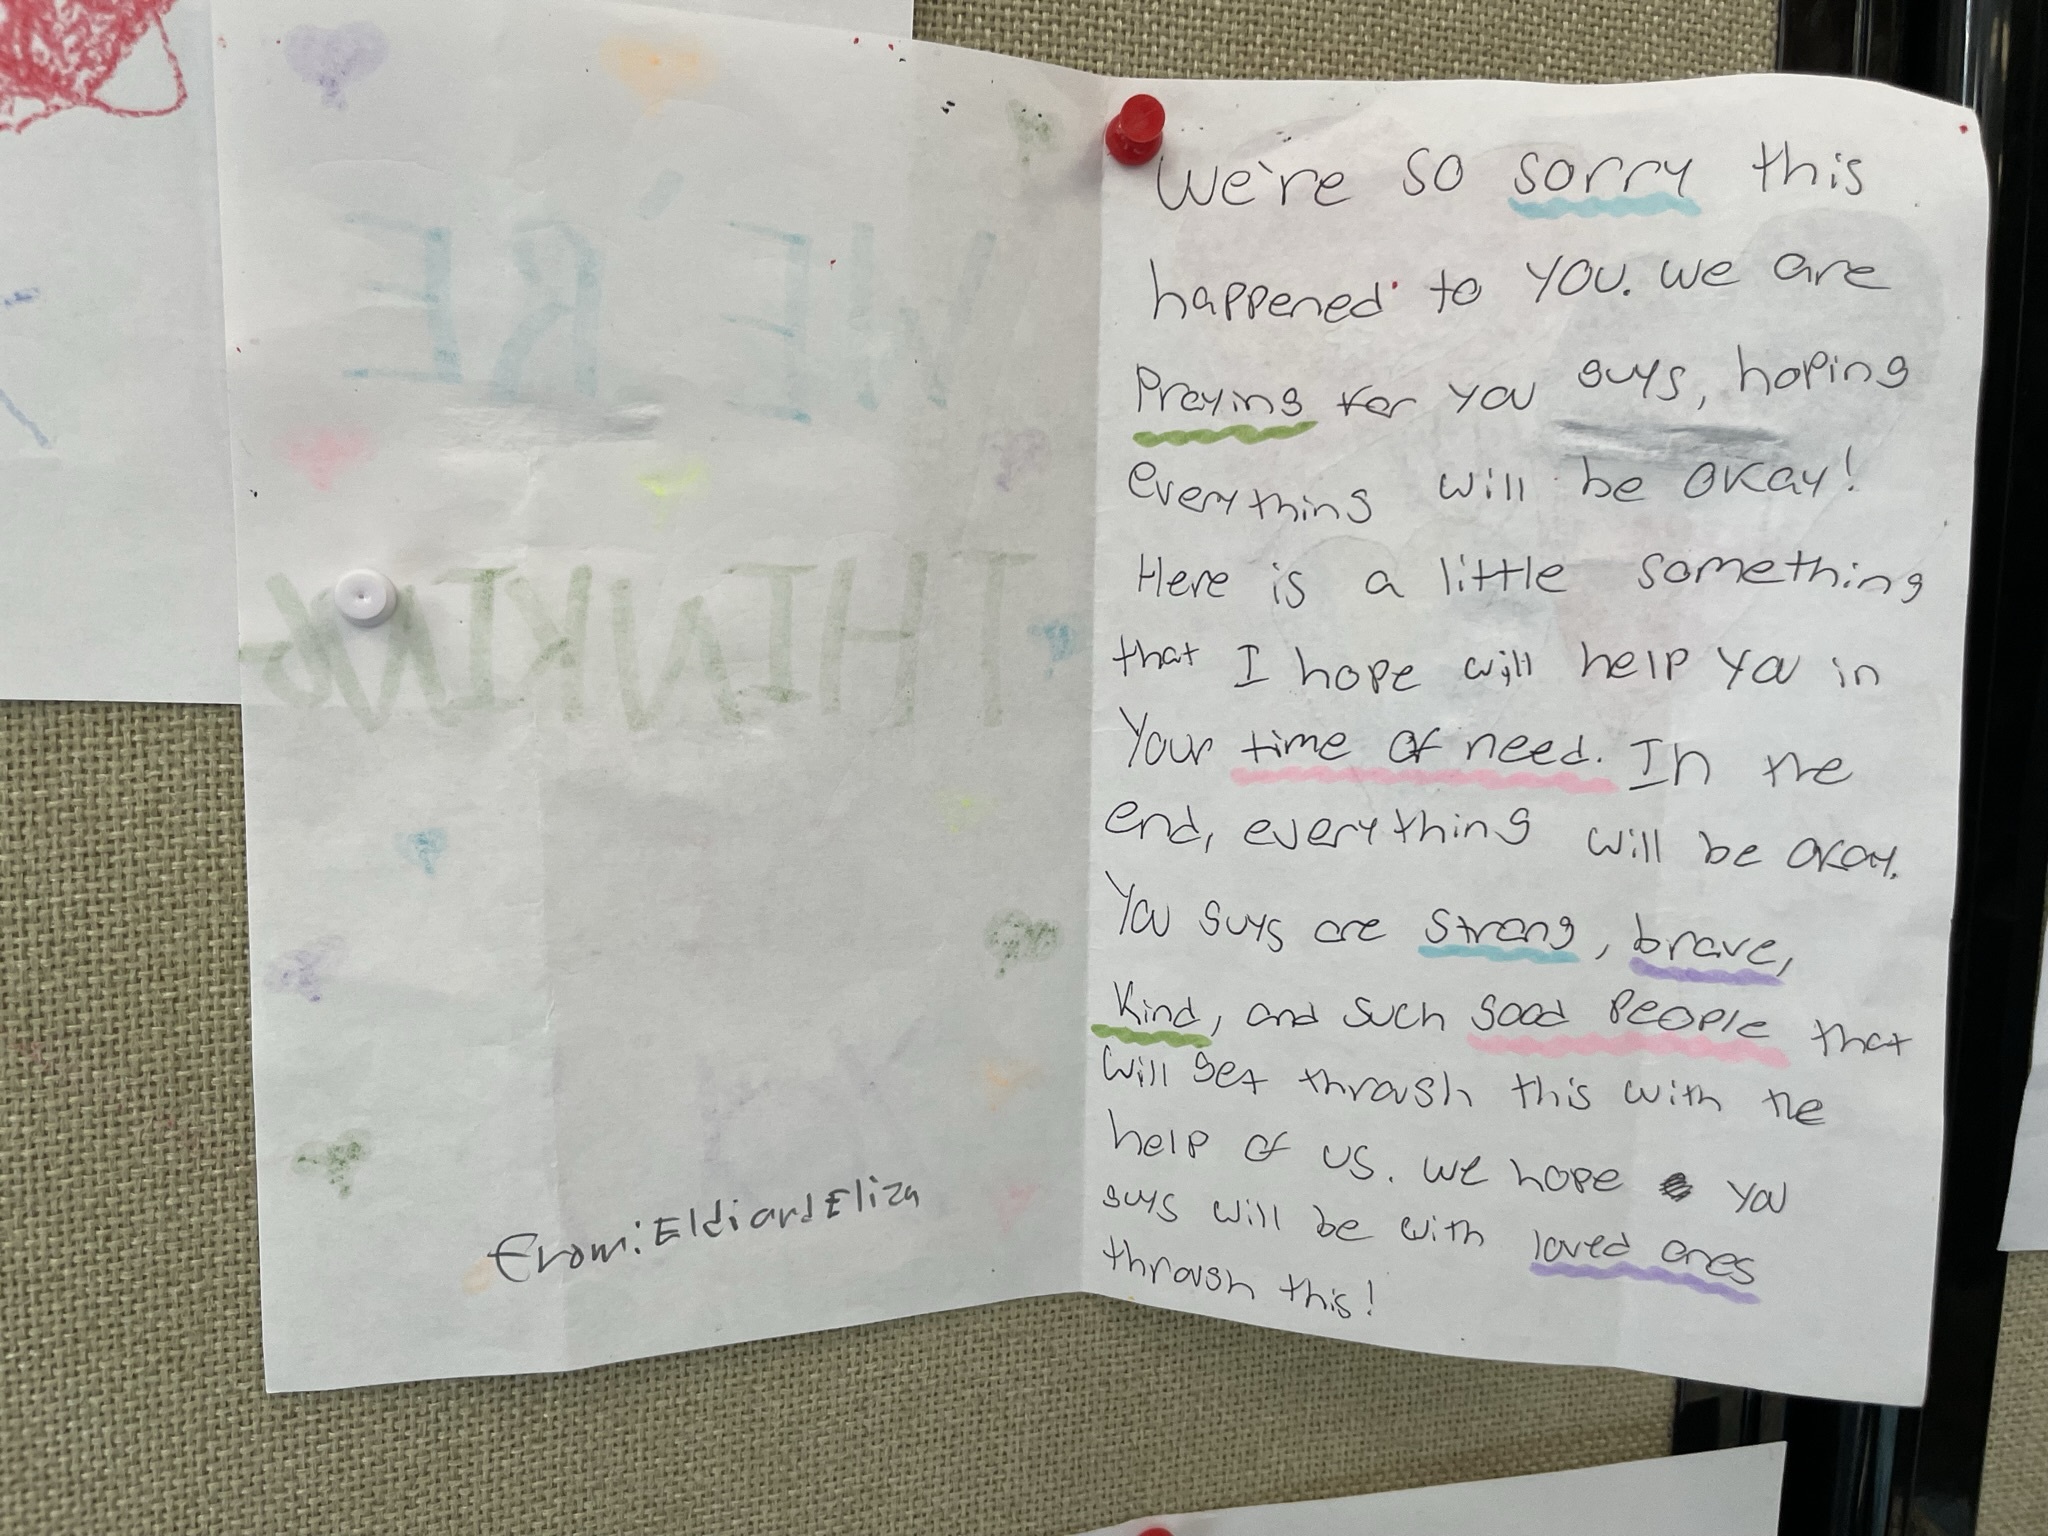 WE'RE
THINKING
From: Eldi and Eliza
We're so sorry this
happened to you. we are
Praying for you guys, hoping
everything will be okay!
Here is a little something
that I hope will help you in
Your time of need. In the
end, everything will be okay.
You guys are strong, brave,
Kind, and such good People that
will get through this with the
help of us. we hope you
guys will be with loved ones
through this!